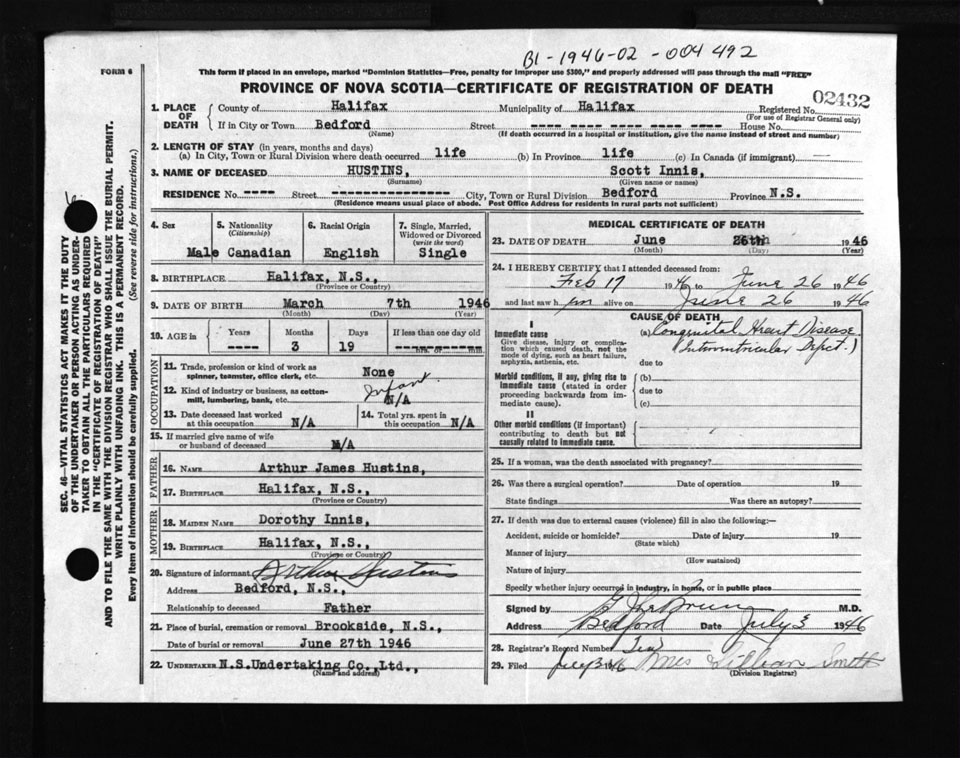 B1-1946-02-004492
FORM 6
This form if placed in an envelope, marked "Dominion Statistics—Free, penalty for improper use $300," and properly addressed will pass through the mail "FREE"
PROVINCE OF NOVA SCOTIA—CERTIFICATE OF REGISTRATION OF DEATH
02432
1. PLACE OF DEATH County of Halifax Municipality of Halifax Registered No.
(For use of Registrar General only)
If in City or Town Bedford Street ---- ---- ---- ---- ---- House No.
(Name) (If death occurred in a hospital or institution, give the name instead of street and number)
2. LENGTH OF STAY (in years, months and days)
(a) In City, Town or Rural Division where death occurred life (b) In Province life (c) In Canada (if immigrant)
3. NAME OF DECEASED HUSTINS, Scott Innis,
(Surname) (Given name or names)
RESIDENCE No. ---- Street ---------------- City, Town or Rural Division Bedford Province N.S.
(Residence means usual place of abode. Post Office Address for residents in rural parts not sufficient)
4. Sex 5. Nationality (Citizenship) 6. Racial Origin 7. Single, Married, Widowed or Divorced (write the word)
Male Canadian English Single
8. BIRTHPLACE Halifax, N.S.,
(Province or Country)
9. DATE OF BIRTH March 7th 1946
(Month) (Day) (Year)
10. AGE in Years Months Days If less than one day old
---- 3 19 hrs. or min.
OCCUPATION
11. Trade, profession or kind of work as spinner, teamster, office clerk, etc. None
Infant
12. Kind of industry or business, as cotton-mill, lumbering, bank, etc. N/A
13. Date deceased last worked at this occupation N/A 14. Total yrs. spent in this occupation N/A
15. If married give name of wife or husband of deceased N/A
FATHER
16. NAME Arthur James Hustins,
17. BIRTHPLACE Halifax, N.S.,
(Province or Country)
MOTHER
18. MAIDEN NAME Dorothy Innis,
19. BIRTHPLACE Halifax, N.S.,
(Province or Country)
20. Signature of informant Arthur Hustins
Address Bedford, N.S.,
Relationship to deceased Father
21. Place of burial, cremation or removal Brookside, N.S.,
Date of burial or removal June 27th 1946
22. UNDERTAKER N.S.Undertaking Co.,Ltd.,
(Name and address)
MEDICAL CERTIFICATE OF DEATH
23. DATE OF DEATH June 26th 1946
(Month) (Day) (Year)
24. I HEREBY CERTIFY that I attended deceased from:
Feb 17 1946 to June 26 1946
and last saw him alive on June 26 1946
CAUSE OF DEATH
I
Immediate cause (a) Congenital Heart Disease
Give disease, injury or complication which caused death, not the mode of dying, such as heart failure, asphyxia, asthenia, etc.
(Interventricular Defect.)
due to
Morbid conditions, if any, giving rise to immediate cause (stated in order proceeding backwards from immediate cause).
(b)
due to
(c)
II
Other morbid conditions (if important) contributing to death but not causally related to immediate cause.
25. If a woman, was the death associated with pregnancy?
26. Was there a surgical operation? Date of operation 19
State findings Was there an autopsy?
27. If death was due to external causes (violence) fill in also the following:—
Accident, suicide or homicide? Date of injury 19
(State which)
Manner of injury
(How sustained)
Nature of injury
Specify whether injury occurred in industry, in home, or in public place
Signed by M.D.
Address Bedford Date July 3 1946
28. Registrar's Record Number Ten
29. Filed July 3 1946 Mrs Lillian Smith
(Division Registrar)
SEC. 46—VITAL STATISTICS ACT MAKES IT THE DUTY
OF THE UNDERTAKER OR PERSON ACTING AS UNDER-
TAKER TO OBTAIN ALL THE PARTICULARS REQUIRED
IN THE "CERTIFICATE OF REGISTRATION OF DEATH"
AND TO FILE THE SAME WITH THE DIVISION REGISTRAR WHO SHALL ISSUE THE BURIAL PERMIT.
WRITE PLAINLY WITH UNFADING INK. THIS IS A PERMANENT RECORD.
Every item of information should be carefully supplied. (See reverse side for instructions.)